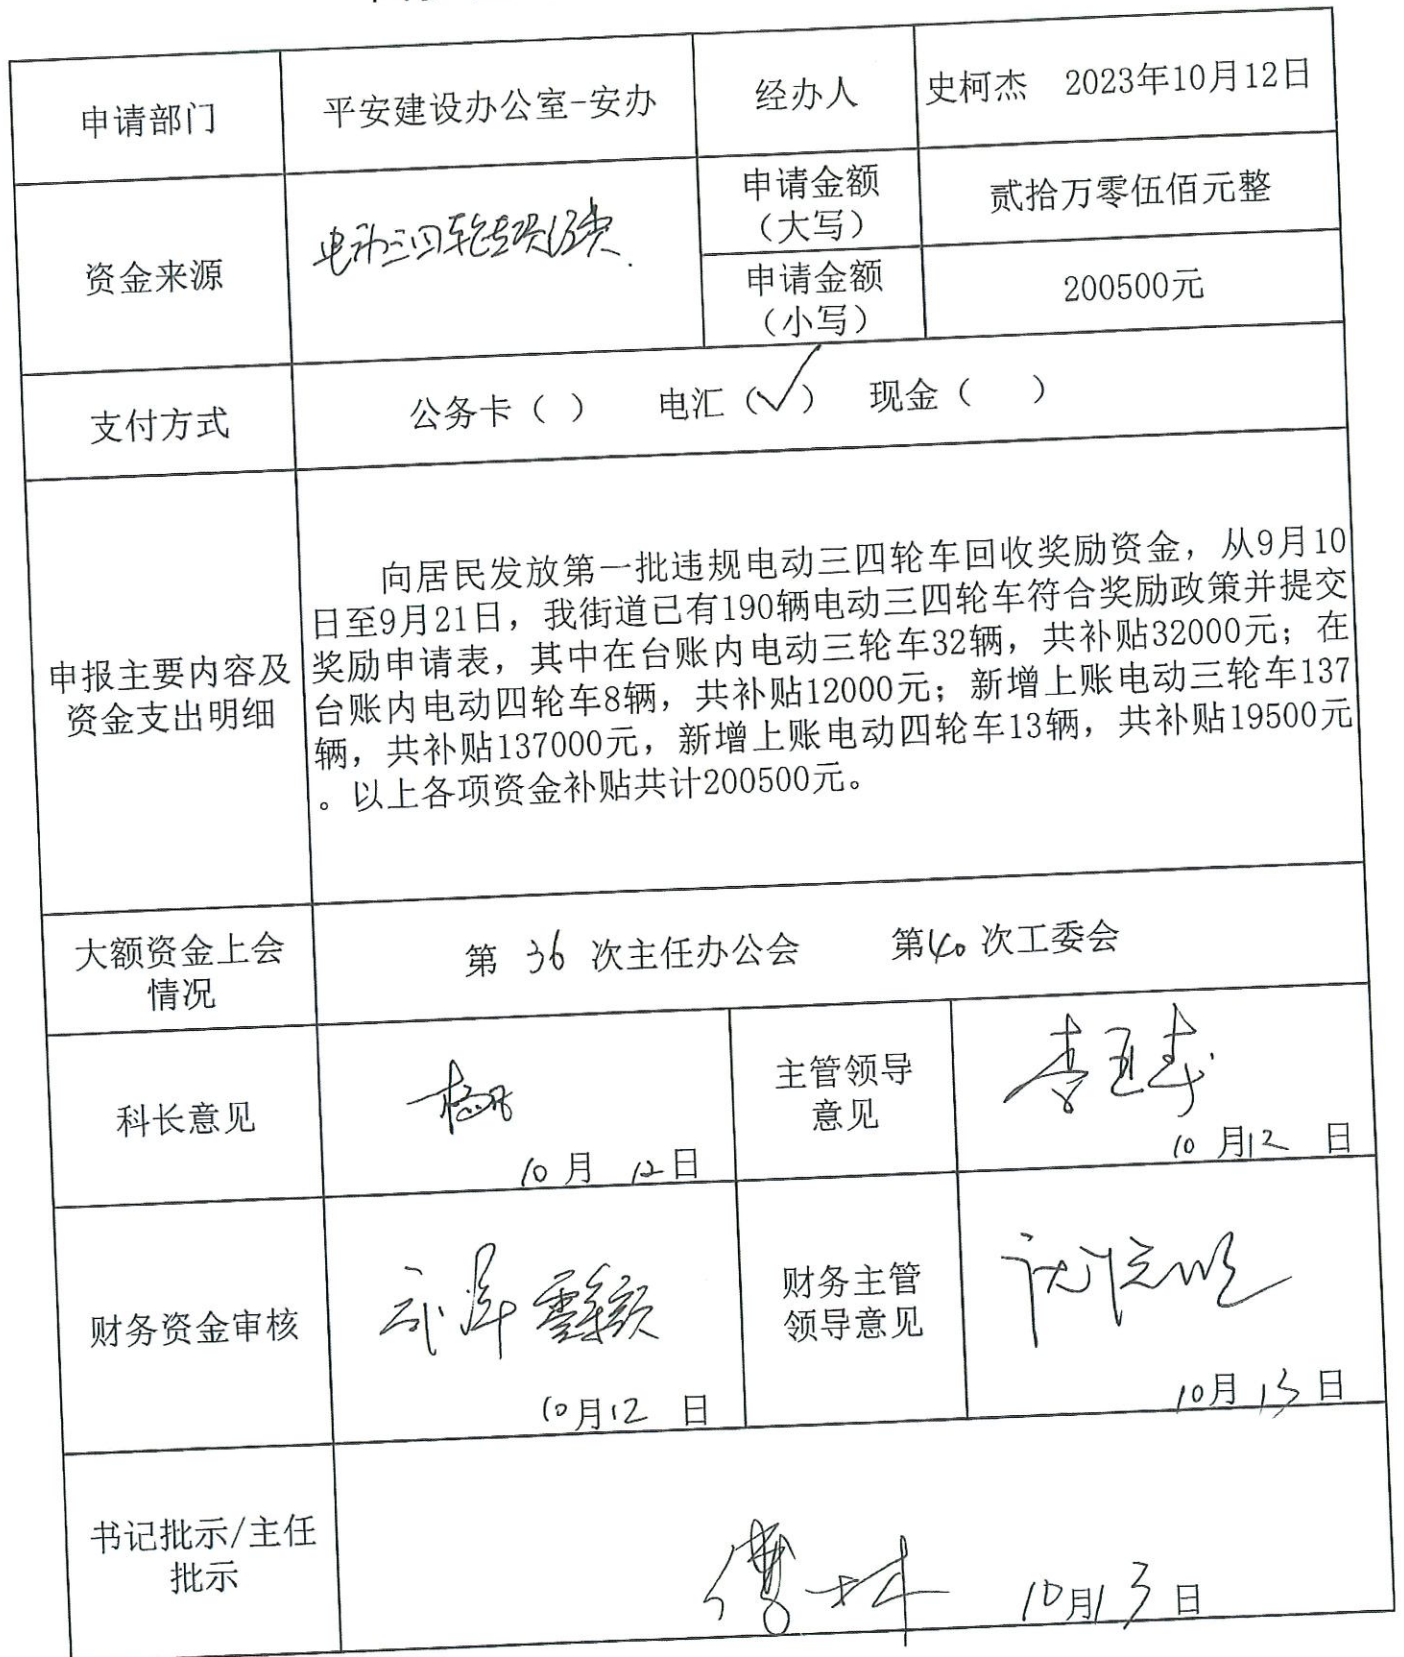 申请部门
平安建设办公室-安办
经办人
史柯杰 2023年10月12日
资金来源
电动三四轮专项经费.
申请金额
（大写）
贰拾万零伍佰元整
申请金额
（小写）
200500元
支付方式
公务卡（ ） 电汇（√） 现金（ ）
申报主要内容及
资金支出明细
向居民发放第一批违规电动三四轮车回收奖励资金，从9月10
日至9月21日，我街道已有190辆电动三四轮车符合奖励政策并提交
奖励申请表，其中在台账内电动三轮车32辆，共补贴32000元；在
台账内电动四轮车8辆，共补贴12000元；新增上账电动三轮车137
辆，共补贴137000元，新增上账电动四轮车13辆，共补贴19500元
。以上各项资金补贴共计200500元。
大额资金上会
情况
第 36 次主任办公会 第40次工委会
科长意见
10月 12日
主管领导
意见
10月12 日
财务资金审核
10月12 日
财务主管
领导意见
10月 13日
书记批示/主任
批示
10月13日